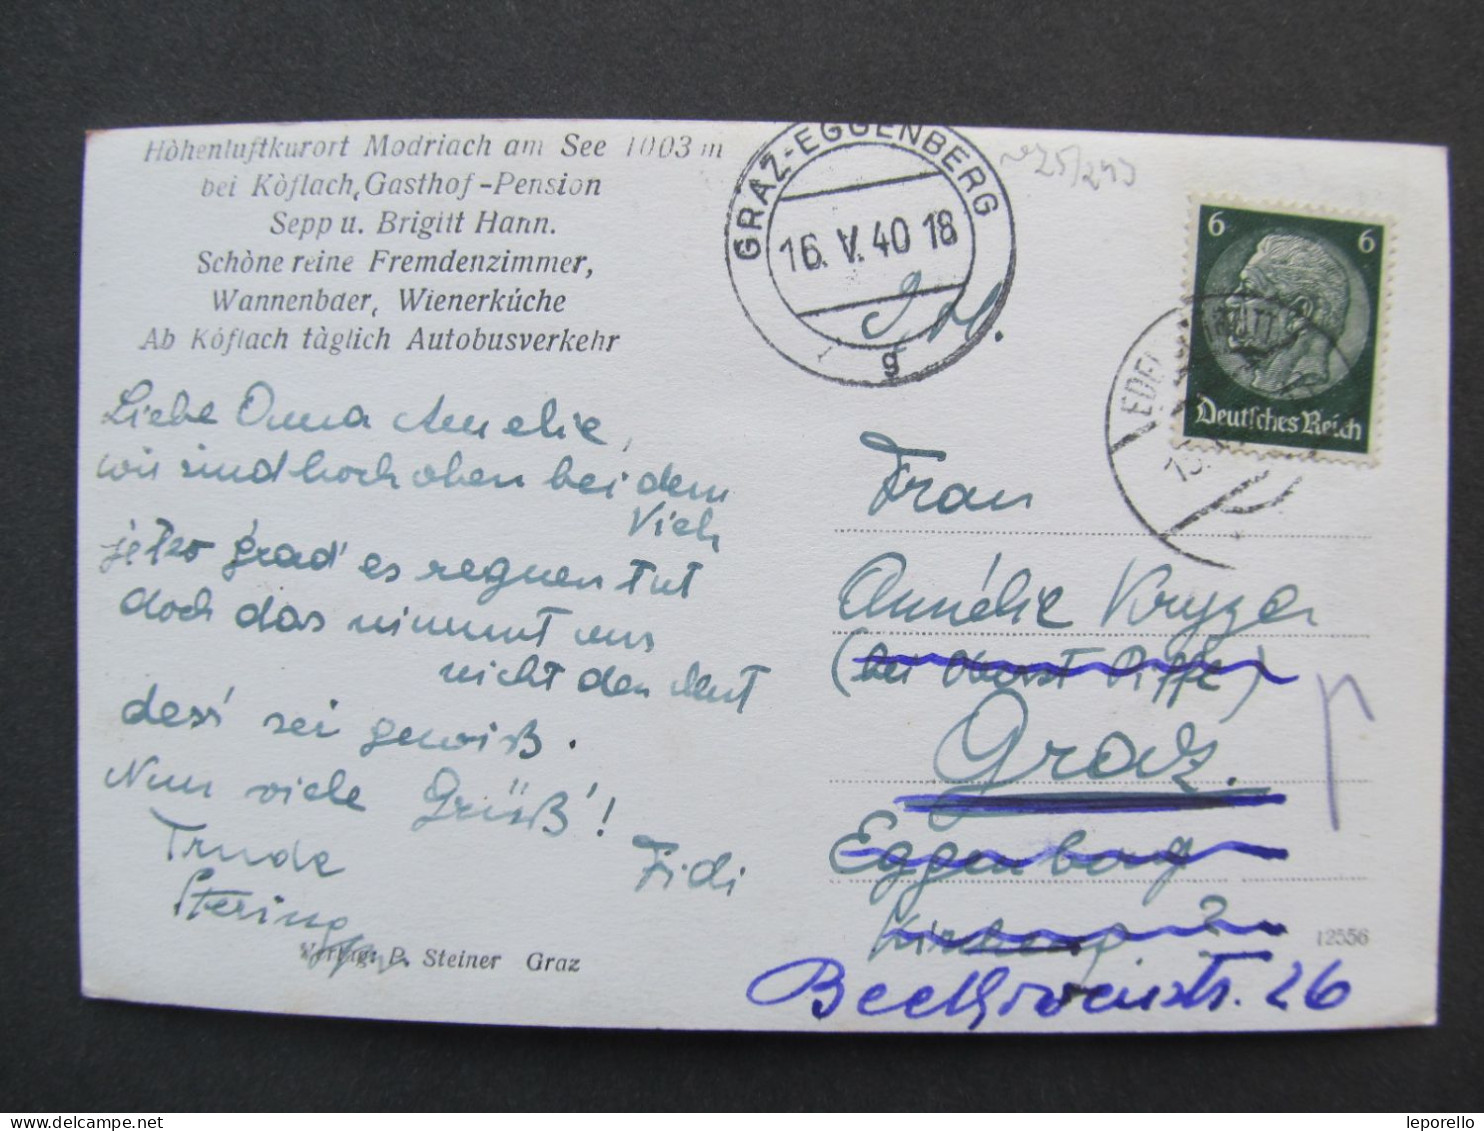 Höhenluftkurort Modriach am See 1003 m
bei Köflach, Gasthof-Pension
Sepp u. Brigitt Hann.
Schöne reine Fremdenzimmer,
Wannenbaer, Wienerküche
Ab Köflach täglich Autobusverkehr
Liebe Omma Amelie,
wir sind hoch oben bei dem
Vieh
jetzo grad' es regnen tut
doch das nimmt uns
nicht den Mut
dess' sei gewiß.
Nun viele Grüß'!
Trude
Fidi
Verlag: P. Steiner Graz
GRAZ-EGGENBERG
16. V. 40 18
g
25/293
6 6
Deutsches Reich
EDEL
Frau
Annélie Kryza
(bei Oberst Piffl)
Graz.
Eggenberg
12556
Beethovenstr. 26
leporello